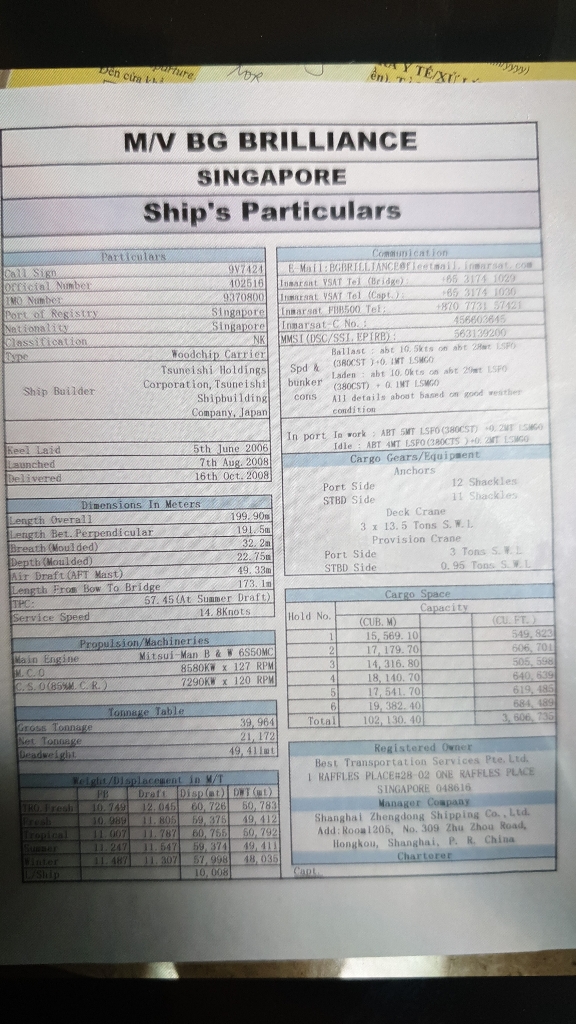 Đến cửa
NOR
Y TẾ/XỬ
M/V BG BRILLIANCE
SINGAPORE
Ship's Particulars
Particulars
Call Sign 9V7424
Official Number 402516
IMO Number 9370800
Port of Registry Singapore
Nationality Singapore
Classification NK
Type Woodchip Carrier
Ship Builder Tsuneishi Holdings
Corporation, Tsuneishi
Shipbuilding
Company, Japan
Keel Laid 5th June 2006
Launched 7th Aug. 2008
Delivered 16th Oct. 2008
Dimensions In Meters
Length Overall 199.90m
Length Bet. Perpendicular 191.5m
Breath(Moulded) 32.2m
Depth(Moulded) 22.75m
Air Draft(AFT Mast) 49.33m
Length From Bow To Bridge 173.1m
TPC: 57.45(At Summer Draft)
Service Speed 14.8Knots
Propulsion/Machineries
Main Engine Mitsui Man B & W 6S50MC
M.C.O 8580KW x 127 RPM
C.S.O(85%M.C.R.) 7290KW x 120 RPM
Tonnage Table
Gross Tonnage 39,964
Net Tonnage 21,172
Deadweight 49,411mt
Weight/Displacement in M/T
FB Draft Disp(mt) DWT(mt)
TRO.Fresh 10.749 12.045 60,726 50,783
Fresh 10.989 11.805 59,375 49,412
Tropical 11.007 11.787 60,755 50,792
Summer 11.247 11.547 59,374 49,411
Winter 11.487 11.307 57,998 48,035
L/Ship 10,008
Communication
E-Mail:BGBRILLIANCE@fleetmail.inmarsat.com
Inmarsat VSAT Tel (Bridge): +65 3174 1029
Inmarsat VSAT Tel (Capt.): +65 3174 1030
Inmarsat FBB500 Tel: +870 7731 57421
Inmarsat-C No.: 456603645
MMSI(DSC/SSI,EPIRB): 563139200
Spd & bunker cons
Ballast : abt 10.5kts on abt 28mt LSFO
(380CST )+0.1MT LSMGO
Laden : abt 10.0kts on abt 29mt LSFO
(380CST) + 0.1MT LSMGO
All details about based on good weather
condition
In port In work : ABT 5MT LSFO(380CST) +0.2MT LSMGO
Idle : ABT 4MT LSFO(380CTS )+0.2MT LSMGO
Cargo Gears/Equipment
Anchors
Port Side 12 Shackles
STBD Side 11 Shackles
Deck Crane
3 x 13.5 Tons S.W.L
Provision Crane
Port Side 3 Tons S.W.L
STBD Side 0.95 Tons S.W.L
Cargo Space
Hold No. Capacity
(CUB.M) (CU.FT.)
1 15,569.10 549,823
2 17,179.70 606,701
3 14,316.80 505,598
4 18,140.70 640,639
5 17,541.70 619,485
6 19,382.40 684,489
Total 102,130.40 3,606,735
Registered Owner
Best Transportation Services Pte. Ltd.
1 RAFFLES PLACE#28-02 ONE RAFFLES PLACE
SINGAPORE 048616
Manager Company
Shanghai Zhengdong Shipping Co., Ltd.
Add:Room1205, No.309 Zhu Zhou Road,
Hongkou, Shanghai, P. R. China
Charterer
Capt.